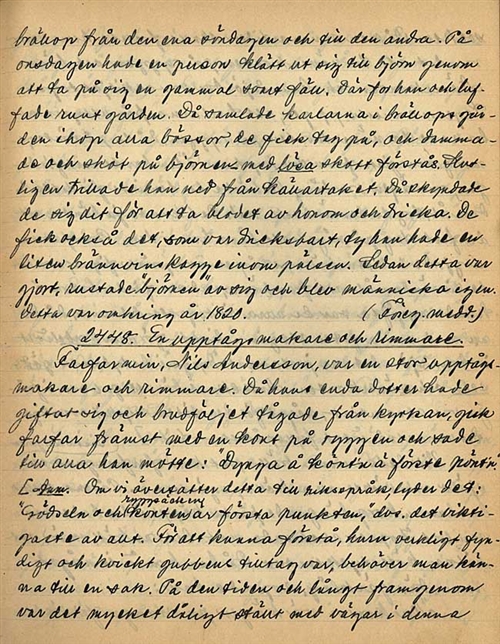 bröllop från den ena söndagen och till den andra. På
onsdagen hade en person klätt ut sig till björn genom
att ta på sig en gammal svart fäll. Där for han och luf-
fade runt gården. Då samlade karlarna i bröllopsgår-
den ihop alla bössor, de fick tag på, och damma-
de och sköt på björnen med lösa skott förstås. Slut-
ligen trillade han ned från källartaket. Då skyndade
de sig dit för att ta blodet av honom och dricka. De
fick också det, som var drickbart, ty han hade en
liten brännvinskagge inom pälsen. Sedan detta var
gjort, rustade björnen av sig och blev människa igen.
Detta var omkring år 1820. (Föreg. medd.)
2448. En upptågsmakare och rimmare.
Farfar min, Nils Andersson, var en stor upptågs-
makare och rimmare. Då hans enda dotter hade
giftat sig och brudföljet tågade från kyrkan, gick
farfar främst med en kont på ryggen och sade
till alla han mötte: "Dynga å köntn ä förste pöntn".
[Anm. Om vi översätter detta till riksspråk, lyder det:
"Gödseln och konten är första punkten," dvs. det vikti-
gaste av allt. För att kunna förstå, huru verkligt fyn-
digt och kvickt gubbens tilltag var, behöver man kän-
na till en sak. På den tiden och långt framgenom
var det mycket dåligt ställt med vägar i denna